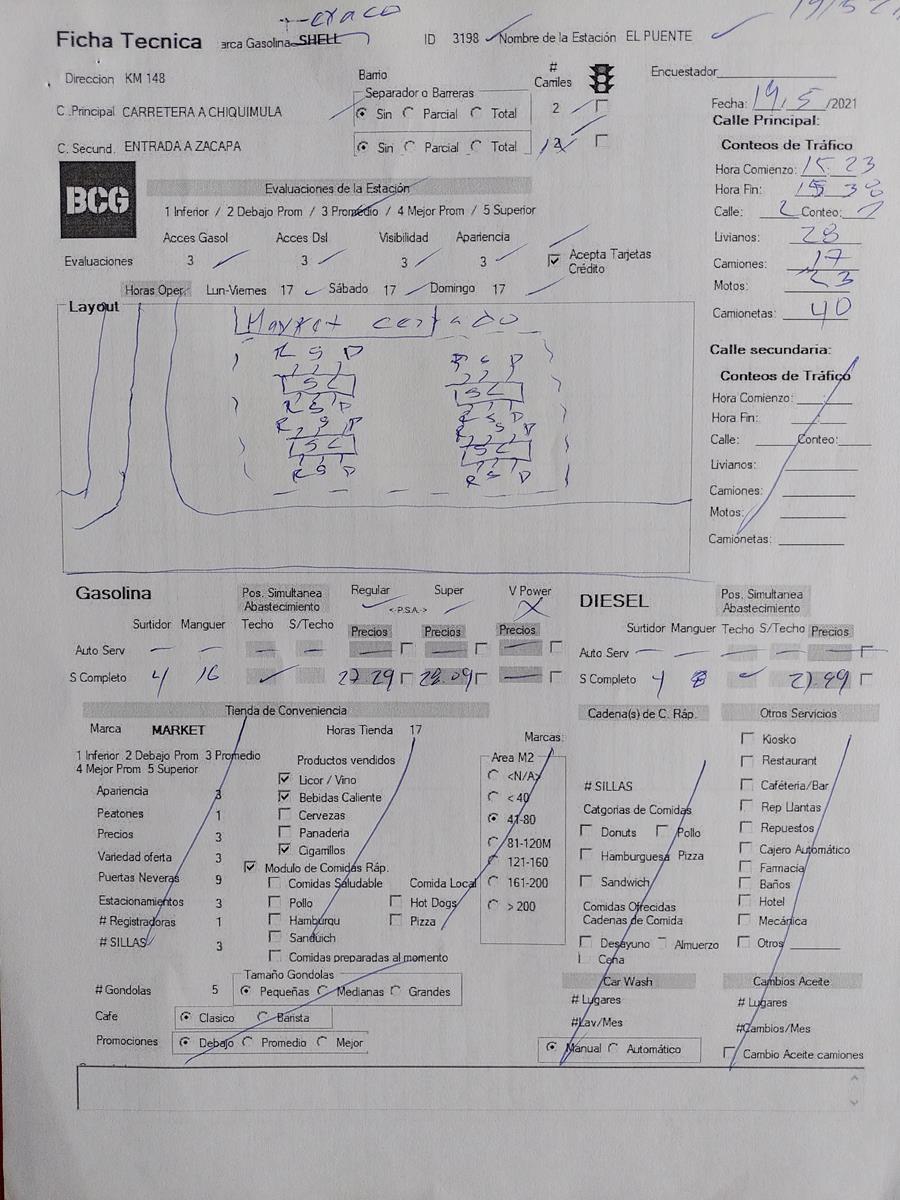 Texaco
Ficha Tecnica arca Gasolina SHELL ID 3198 Nombre de la Estación EL PUENTE
Direccion KM 148 Barrio # Carriles Encuestador
Separador o Barreras
C .Principal CARRETERA A CHIQUIMULA Sin Parcial Total 2
Fecha: 19/5/2021
C. Secund. ENTRADA A ZACAPA Sin Parcial Total
BCG
Evaluaciones de la Estación
1 Inferior / 2 Debajo Prom / 3 Promedio / 4 Mejor Prom / 5 Superior
Acces Gasol Acces Dsl Visibilidad Apariencia
Evaluaciones 3 3 3 3 Acepta Tarjetas Crédito
Horas Oper. Lun-Viernes 17 Sábado 17 Domingo 17
Calle Principal:
Conteos de Tráfico
Hora Comienzo: 15:23
Hora Fin: 15:38
Calle: 2 Conteo:
Livianos: 28
Camiones: 17
Motos: 23
Camionetas: 40
Calle secundaria:
Conteos de Tráfico
Hora Comienzo: :
Hora Fin: :
Calle: Conteo:
Livianos:
Camiones:
Motos:
Camionetas:
Layout
Market cerrado
R S D R S D
SC SC
R S D R S D
R S D R S D
SC SC
R S D R S D
Gasolina Pos. Simultanea Abastecimiento Regular Super V Power
<-P.S.A.->
Surtidor Manguer Techo S/Techo Precios Precios Precios
Auto Serv — — — — — — —
S Completo 4 16 27.29 28.09 —
DIESEL Pos. Simultanea Abastecimiento
Surtidor Manguer Techo S/Techo Precios
Auto Serv — — — — —
S Completo 4 8 21.99
Tienda de Conveniencia
Marca MARKET Horas Tienda 17
1 Inferior 2 Debajo Prom 3 Promedio
4 Mejor Prom 5 Superior
Apariencia 3
Peatones 1
Precios 3
Variedad oferta 3
Puertas Neveras 9
Estacionamientos 3
# Registradoras 1
# SILLAS 3
Productos vendidos
Licor / Vino
Bebidas Caliente
Cervezas
Panaderia
Cigarrillos
Modulo de Comidas Ráp.
Comidas Saludable Comida Local
Pollo Hot Dogs
Hamburqu Pizza
Sanduich
Comidas preparadas al momento
Marcas:
Area M2
<N/A>
< 40
41-80
81-120M
121-160
161-200
> 200
# Gondolas 5
Tamaño Gondolas
Pequeñas Medianas Grandes
Cafe Clasico Barista
Promociones Debajo Promedio Mejor
Cadena(s) de C. Ráp.
# SILLAS
Catgorias de Comidas
Donuts Pollo
Hamburguesa Pizza
Sandwich
Comidas Ofrecidas
Cadenas de Comida
Desayuno Almuerzo
Cena
Car Wash
# Lugares
#Lav/Mes
Manual Automático
Otros Servicios
Kiosko
Restaurant
Cafeteria/Bar
Rep Llantas
Repuestos
Cajero Automático
Farmacia
Baños
Hotel
Mecánica
Otros
Cambios Aceite
# Lugares
#Cambios/Mes
Cambio Aceite camiones